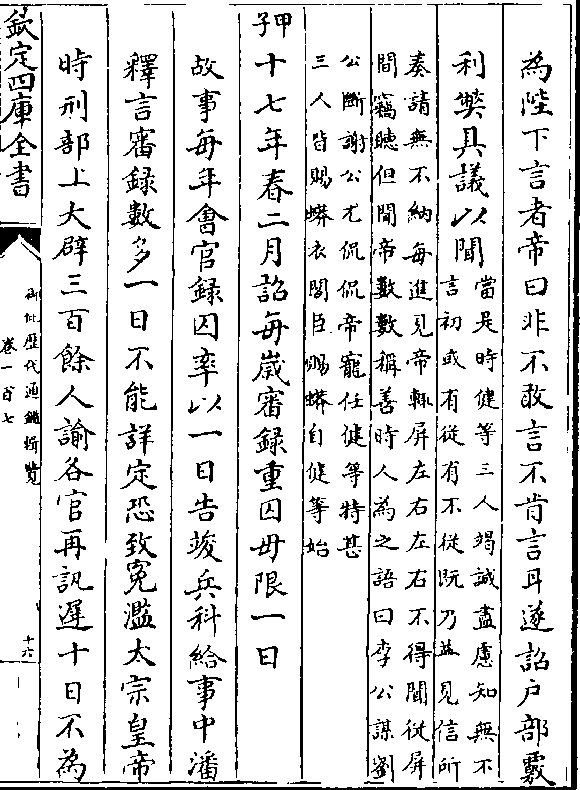 為陛下言者帝曰非不敢言不肯言耳遂詔户部覈
利獘具議以聞
當是時健等三人竭誠盡慮知無不
言初或有從有不從既乃益見信所
奏請無不納每進見帝輒屏左右左右不得聞從屏
間竊聽但聞帝數數稱善時人為之語曰李公謀劉
公斷謝公尤侃侃帝寵任健等特甚
三人皆賜蟒衣閣臣賜蟒自健等始
甲子
十七年春二月詔每歲審録重囚毋限一日
故事每年會官録囚率以一日告竣兵科給事中潘
釋言審録數多一日不能詳定恐致冤濫太宗皇帝
時刑部上大辟三百餘人諭各官再訊遲十日不為
欽定四庫全書
御批歷代通鑑輯覽
卷一百七
十六